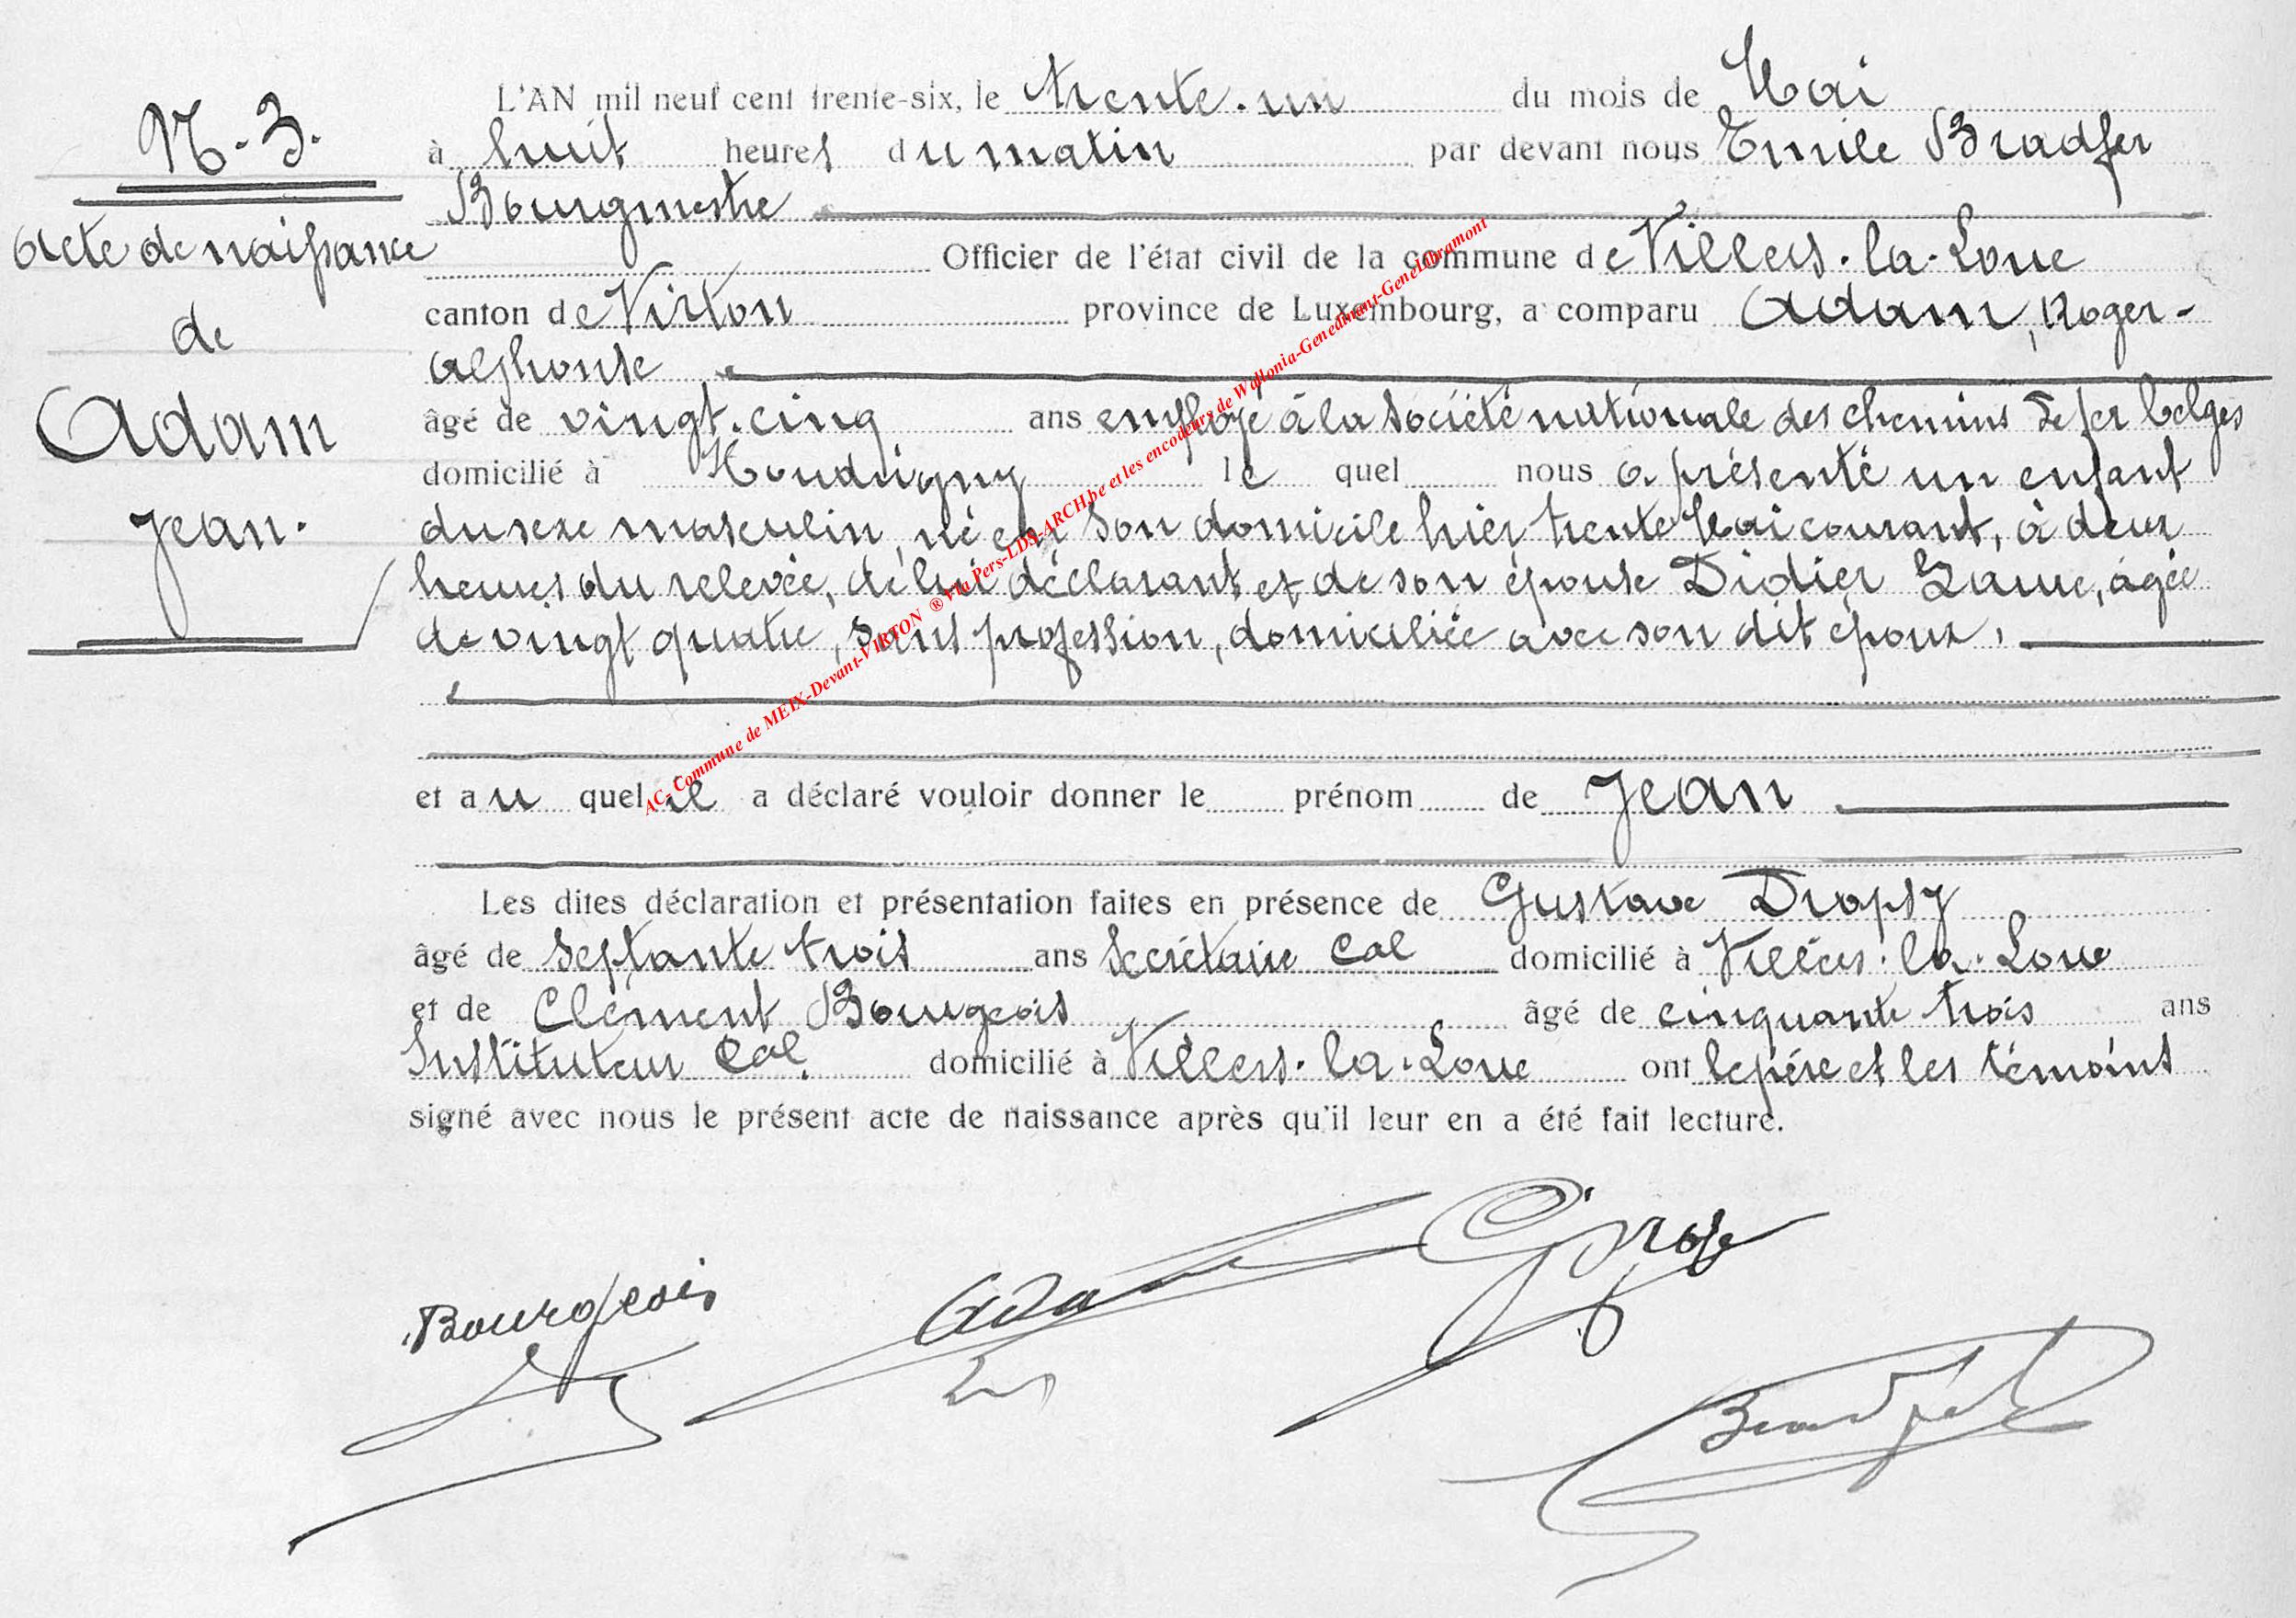 N-3.
acte de naissance
de
Adam
Jean.
L'AN mil neuf cent trente-six, le trente-un du mois de Mai
à huit heures du matin par devant nous Emile Bradfer
Bourgmestre
Officier de l'état civil de la commune de Villers-la-Loue
canton de Virton province de Luxembourg, a comparu Adam, Roger-
Alphonse
âgé de vingt-cinq ans employé à la Société nationale des chemins de fer belges
domicilié à Houdrigny le quel nous a présenté un enfant
du sexe masculin, né en son domicile hier trente Mai courant, à deux
heures du relevée, de lui déclarant et de son épouse Didier Laure, agée
de vingt quatre, sans profession, domiciliée avec son dit époux,
et au quel il a déclaré vouloir donner le prénom de Jean
Les dites déclaration et présentation faites en présence de Gustave Dropsy
âgé de septante trois ans Secrétaire Cal domicilié à Villers-la-Loue
et de Clément Bourgeois âgé de cinquante trois ans
Instituteur Cal. domicilié à Villers-la-Loue ont le père et les témoins
signé avec nous le présent acte de naissance après qu'il leur en a été fait lecture.
Bourgeois Adam
Bradfer
AC- Commune de MEIX-Devant-VIRTON ® Via Pers-LDS-ARCH.be et les encodeurs de Wallonia-Genedinant-Genelibramont